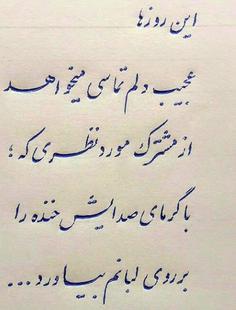 این روزها
عجیب دلم تماسی میخواهد
از مشترک مورد نظری که ؛
با گرمای صدایش خنده را
بر روی لبانم بیاورد...